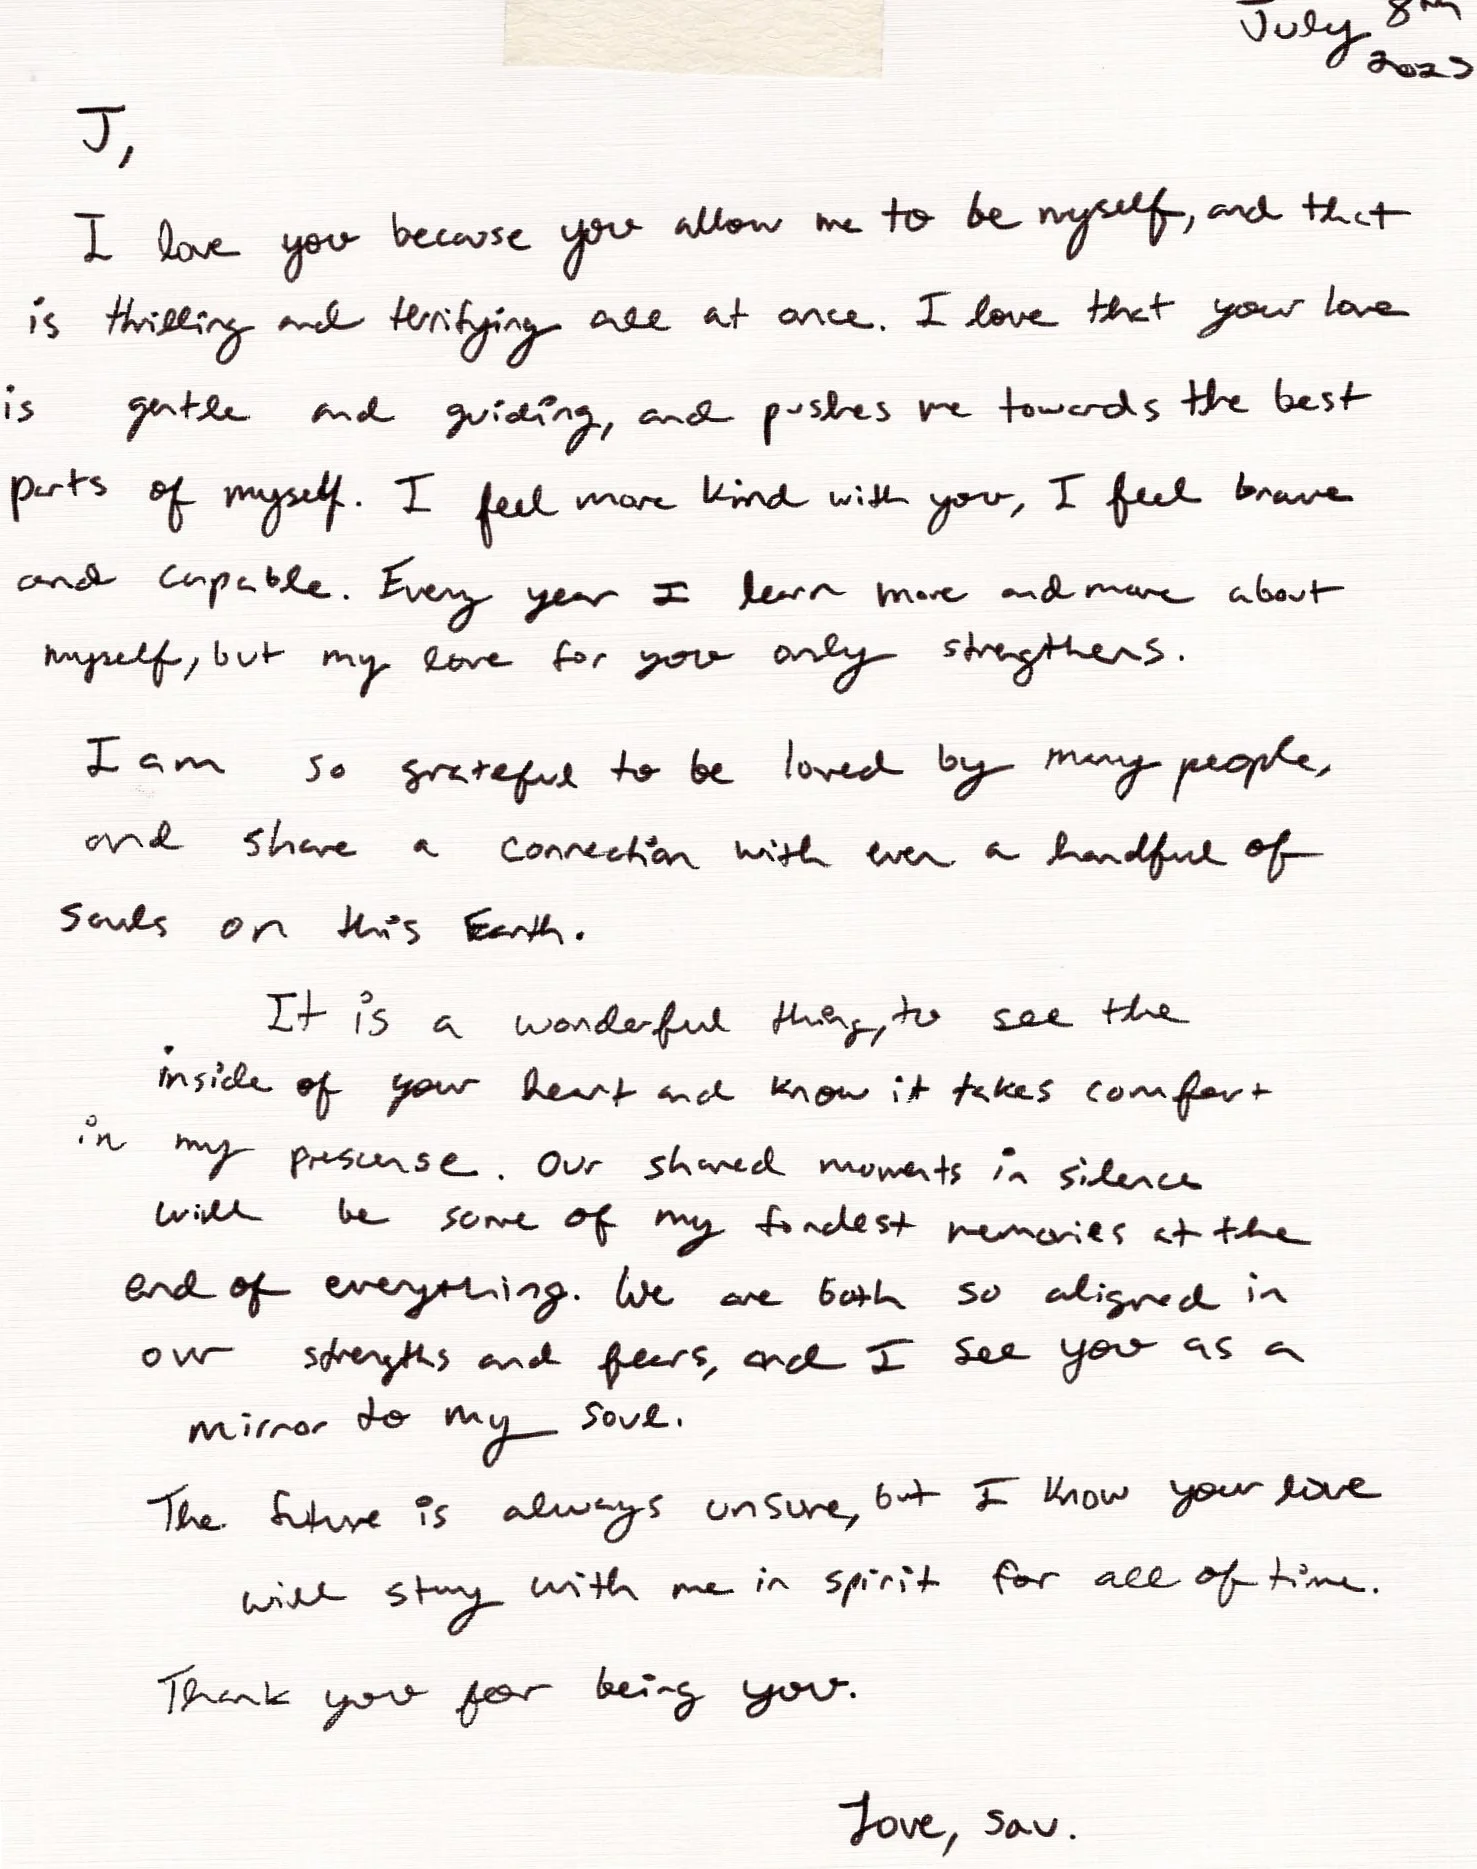 July 8th
2023
J,
I love you because you allow me to be myself, and that
is thrilling and terrifying all at once. I love that your love
is gentle and guiding, and pushes me towards the best
parts of myself. I feel more kind with you, I feel brave
and capable. Every year I learn more and more about
myself, but my love for you only strengthens.
I am so grateful to be loved by many people,
and share a connection with even a handful of
souls on this Earth.
It is a wonderful thing, to see the
inside of your heart and know it takes comfort
in my prescense. Our shared moments in silence
will be some of my fondest memories at the
end of everything. We are both so aligned in
our strengths and fears, and I see you as a
mirror to my soul.
The future is always unsure, but I know your love
will stay with me in spirit for all of time.
Thank you for being you.
Love, Sav.